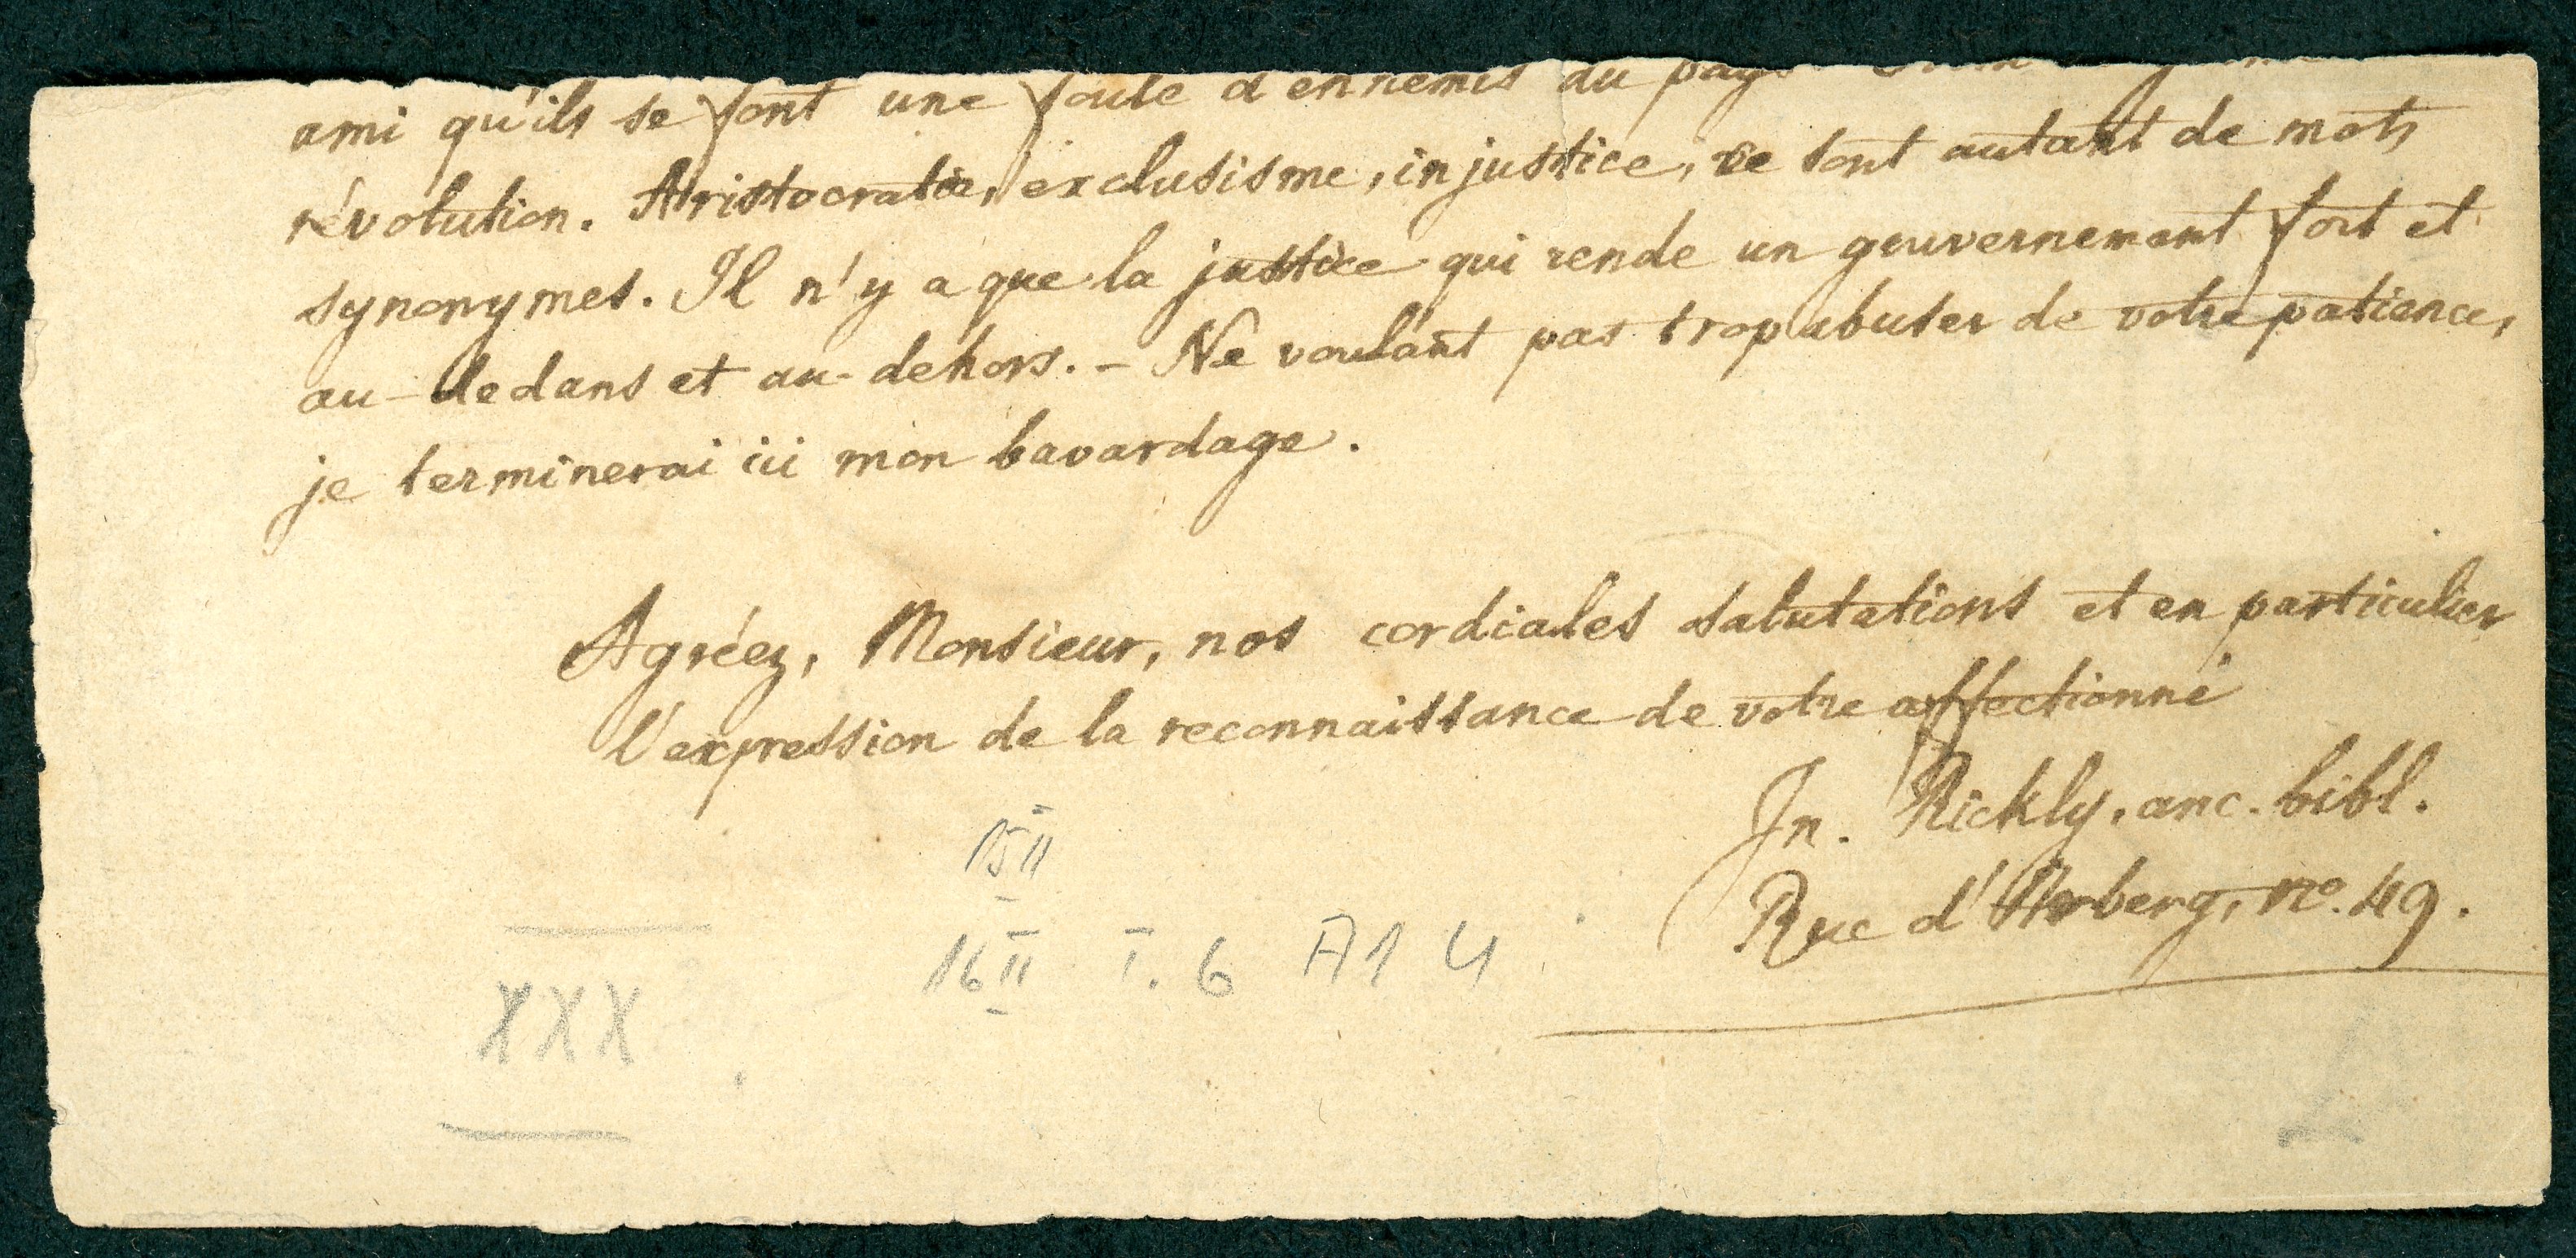 ami qu'ils se font une foule d'ennemis du pays
révolution. Aristocratie, exclusisme, injustice, ce sont autant de mots
synonymes. Il n'y a que la justice qui rende un gouvernement fort et
au-dedans et au-dehors. - Ne voulant pas trop abuser de votre patience,
je terminerai ici mon bavardage.
Agréez, Monsieur, nos cordiales salutations et en particulier
l'expression de la reconnaissance de votre affectionné
Jn. Rickly, anc. bibl.
Rue d'Arberg, no. 49.
15 II
16 II I. 6 A1 4
XXX